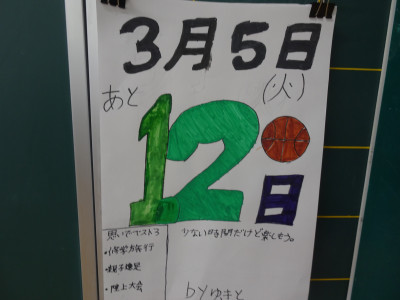 3月5日
(火)
あと
12日
思い出ベスト3
・修学旅行
・親子遠足
・陸上大会
少ない時間だけど楽しもう。
byゆきと